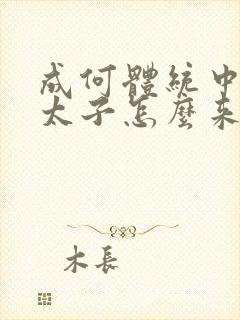 成何體統中
太子怎麼來
木長